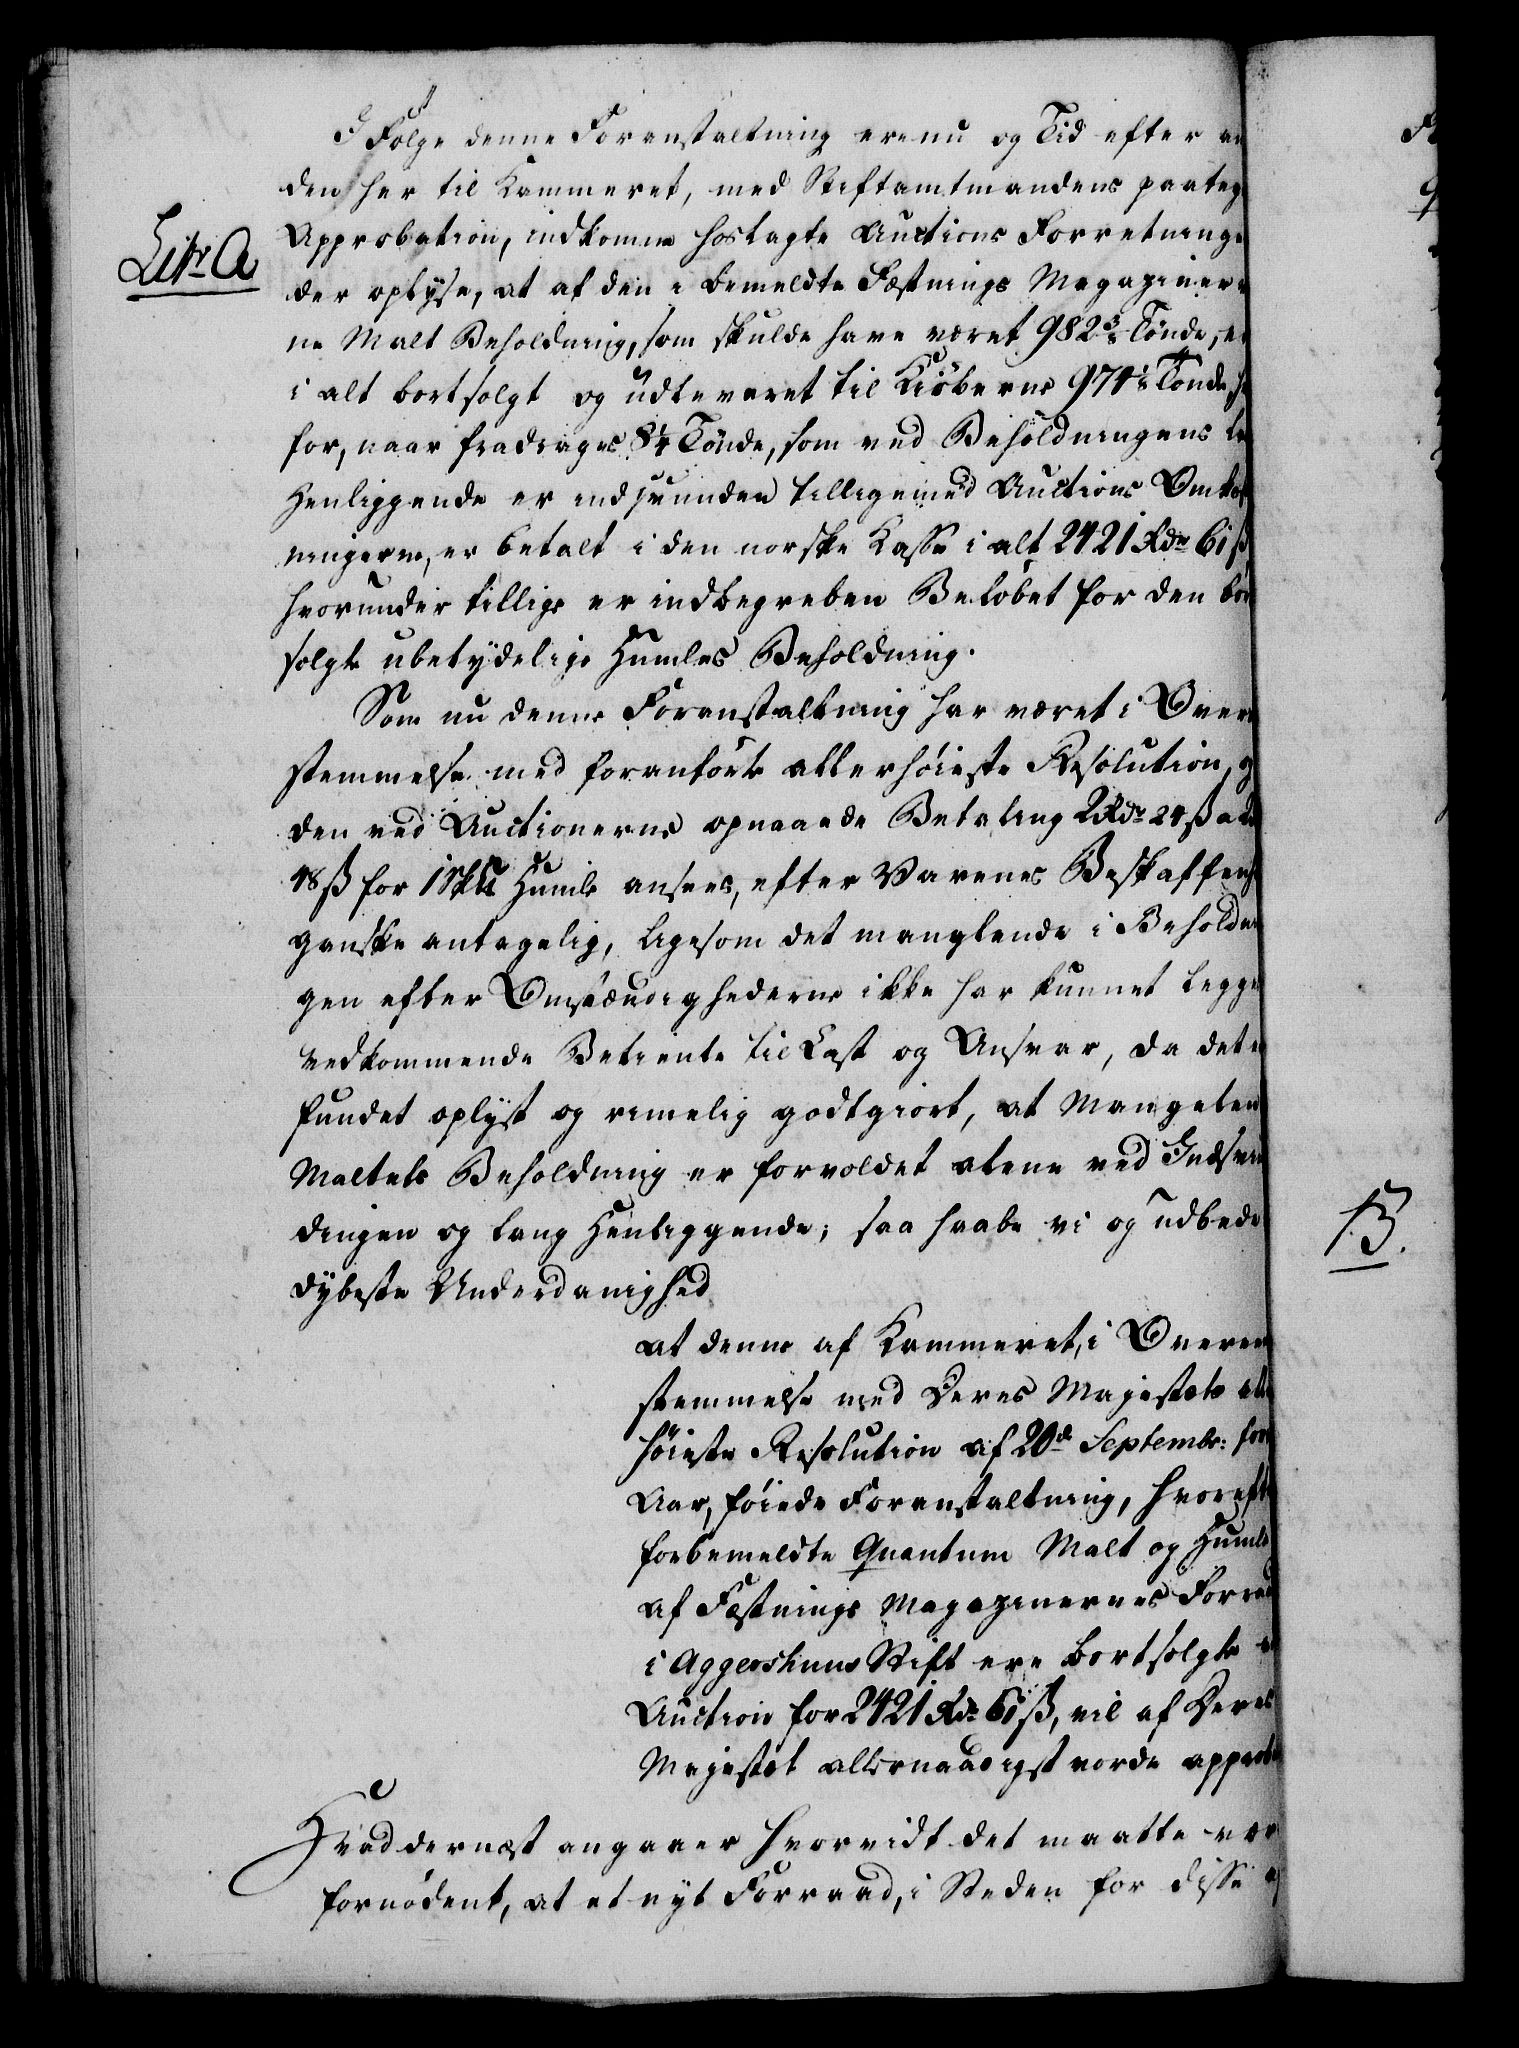 I Følge denne Foranstaltning ere nu og Tid efter an
den her til Kammeret, med Stiftamtmandens paateg
Litr A
Approbation, indkomne hoslagte Auctions Forretninge
der oplyse, at af den i bemeldte Fæstnings Magaziner
ne Malt Beholdning, som skulde have været 982 3/8 Tønde, er
i alt bortsolgt og udleveret til Kiøberne 974 1/8 Tønde, h
for, naar fradrages 8 1/4 Tønde, som ved Beholdningens
Henliggende er indsvunden tilligemed Auctions Omkost
ningerne, er betalt i den norske Kasse i alt 2421 Rdr 61 ß
hvorunder tillige er indbegreben Beløbet for den bort
solgte ubetydelige Humles Beholdning.
Som nu denne Foranstaltning har været i Overe
stemmelse med foranførte allerhøieste Resolution, og
den ved Auctionerne opnaaede Betaling 2 Rdr 24 ß a 2
48 ß for 1 Sk℔ Humle ansees, efter Varenes Beskaffenh
ganske antagelig, ligesom det manglende i Beholdnin
gen efter Omstændighederne ikke har kunnet legges
vedkommende Betiente til Last og Ansvar, da det er
fundet oplyst og rimelig godtgiort, at Mangelen
Maltets Beholdning er forvoldet alene ved Indsvin
dingen og lang Henliggende; saa haabe vi og udbede
dybeste Underdanighed
at denne af Kammeret, i Overeen
stemmelse med Deres Majestæts aller
høieste Resolution af 20d Septembr: for
Aar, føiede Foranstaltning, hvorefter
forbemeldte Quantum Malt og Humle
af Fæstnings Magazinernes Forraad
i Aggershuus Stift ere bortsolgte
Auction for 2421 Rdr 61 ß, vil af Deres
Majestæt allernaadigst vorde approbe
Hvad dernæst angaaer hvorvidt det maatte være
fornødent, at et nyt Forraad, i Steden for disse
B.